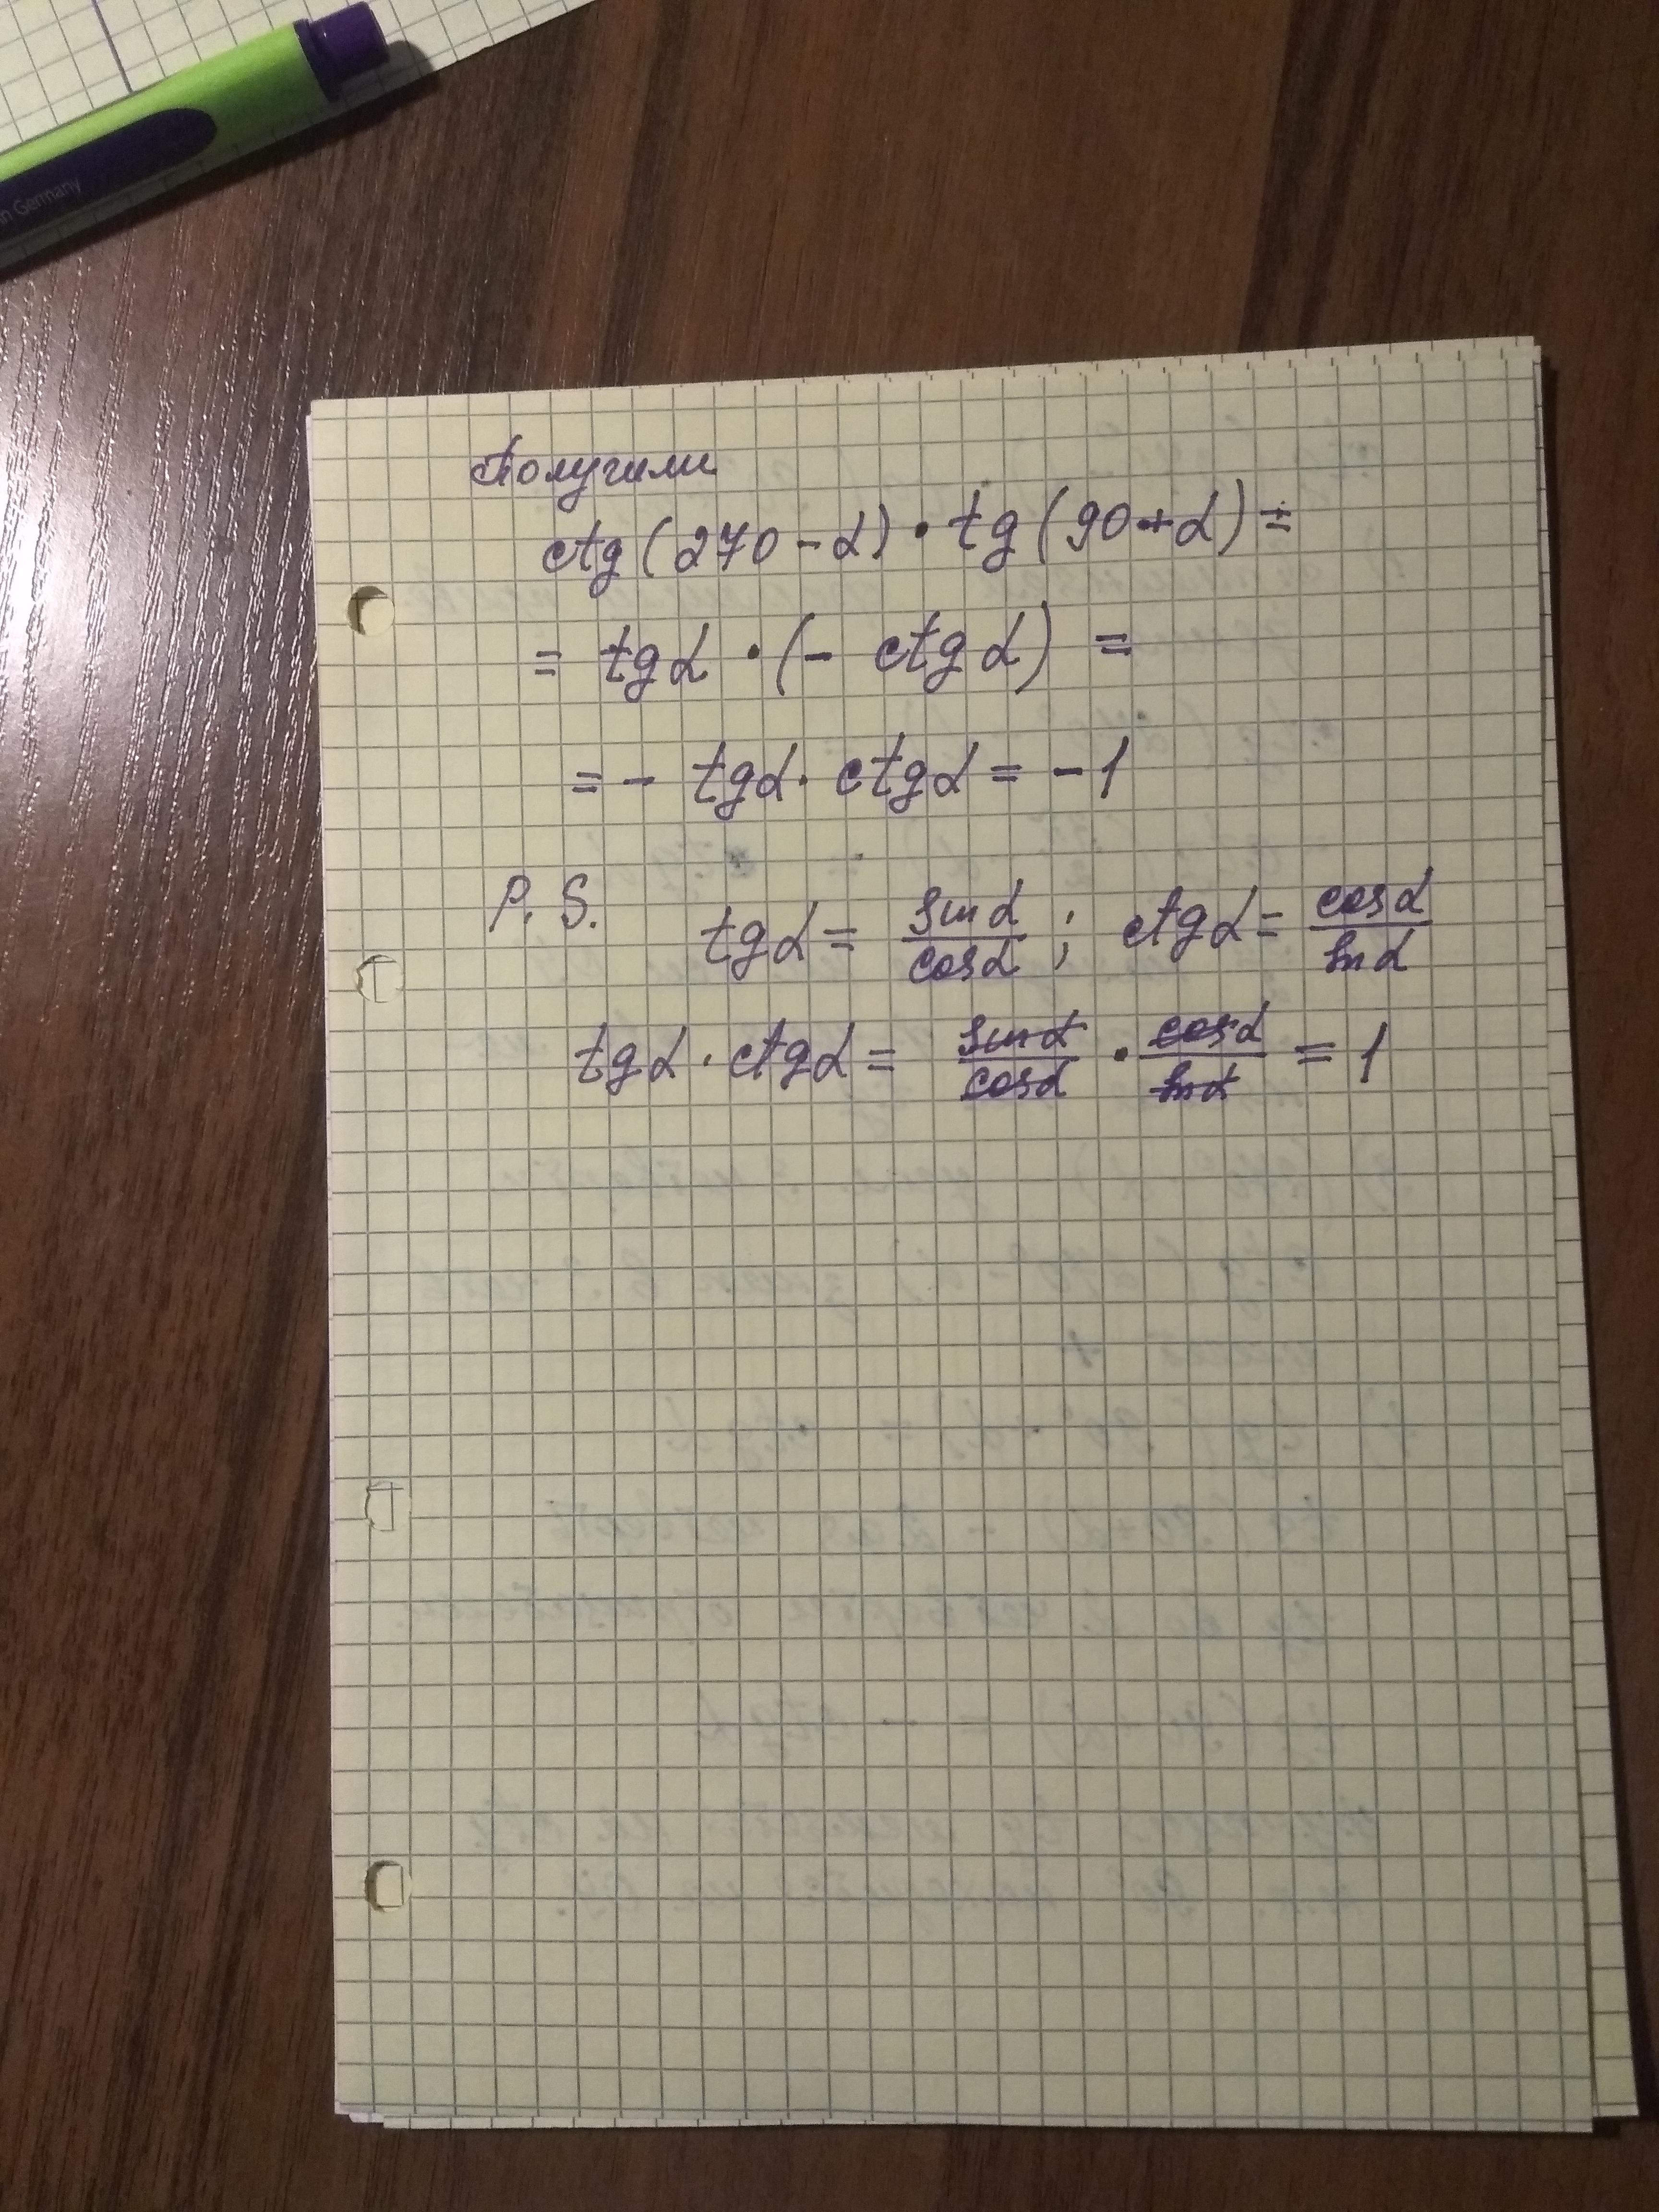 n Germany
Получили
ctg(270-α)·tg(90+α)=
= tgα·(- ctgα) =
= - tgα·ctgα = -1
P.S. tgα = sinα/cosα; ctgα = cosα/sinα
tgα·ctgα = sinα/cosα · cosα/sinα = 1